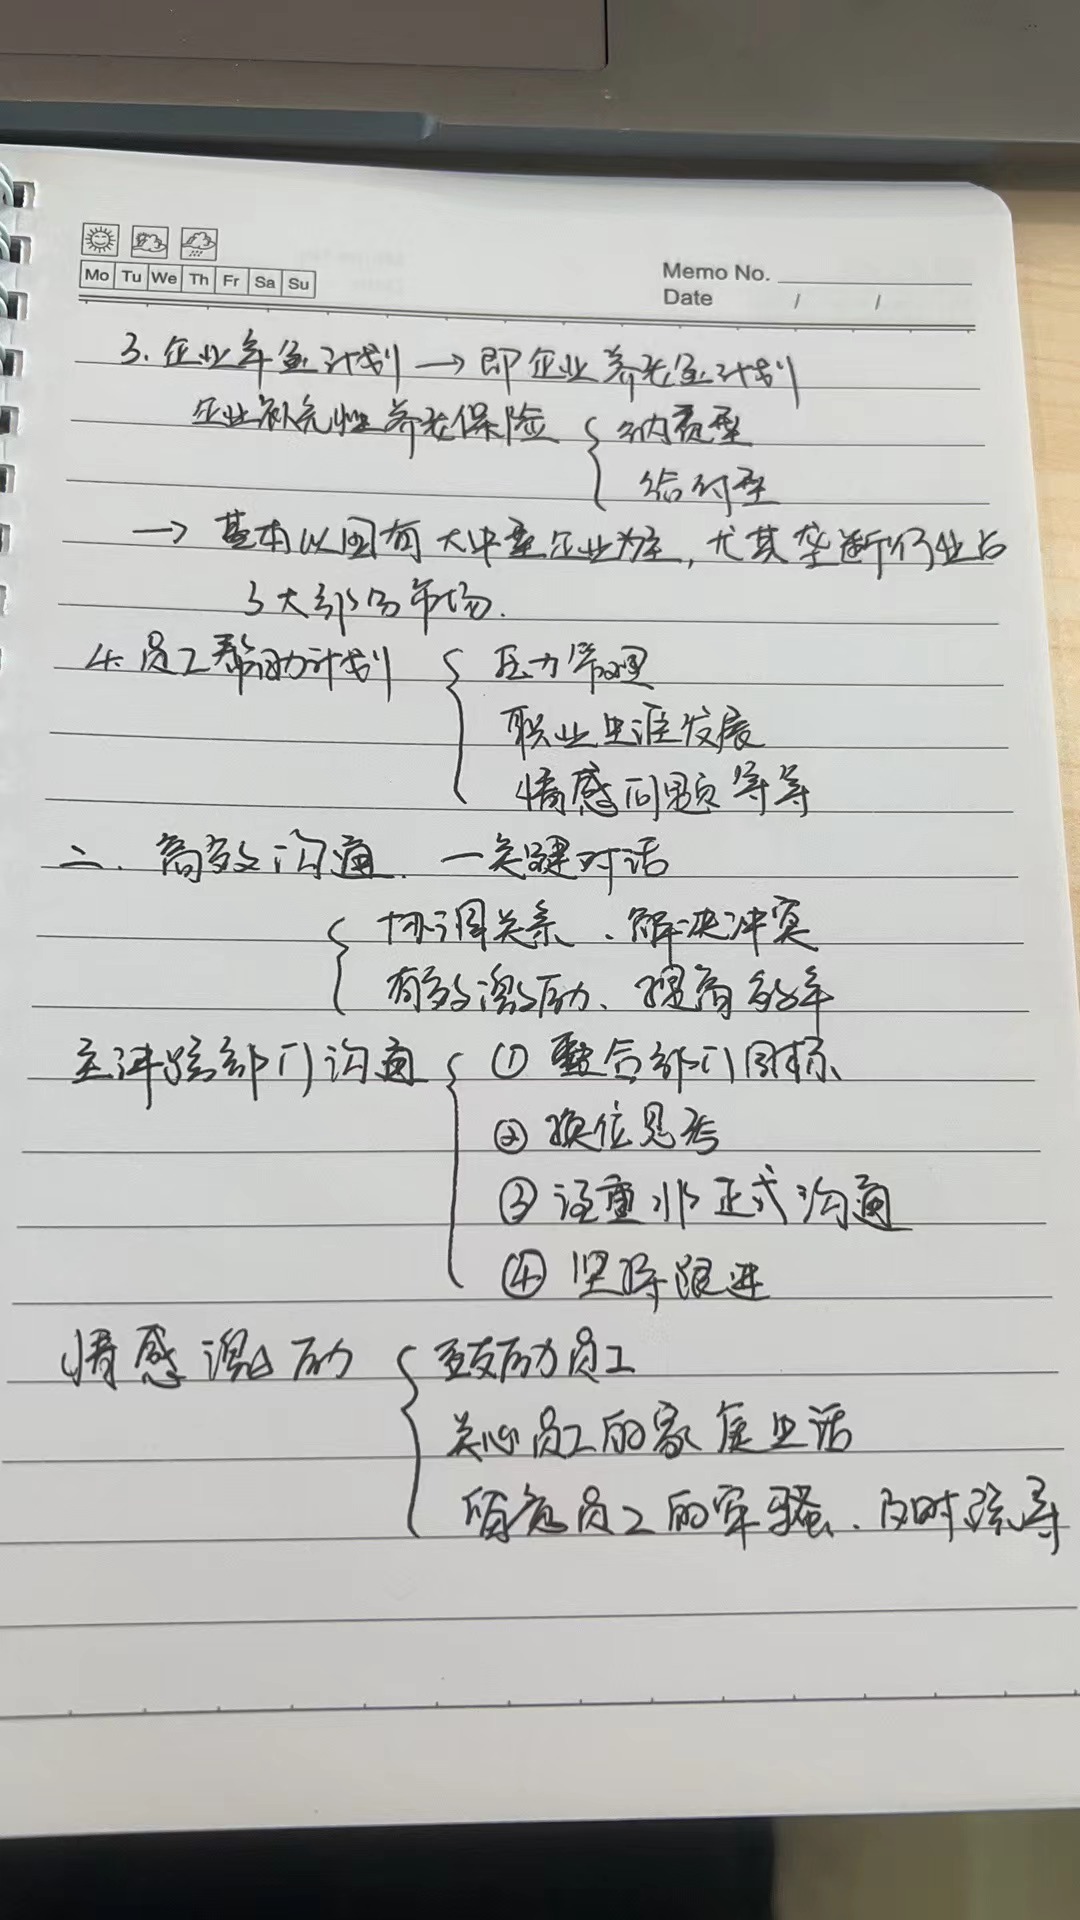 Mo Tu We Th Fr Sa Su
Memo No.
Date / /
3. 企业年金计划 → 即企业养老金计划
企业补充性养老保险 { 纳费型
给付型
→ 基本以国有大中型企业为主, 尤其垄断行业占
了大部分市场.
4. 员工帮助计划 { 压力管理
职业生涯发展
情感问题等等
二. 高效沟通. — 关键对话
{ 协调关系、解决冲突
有效激励、提高效率
主讲跨部门沟通 { ① 整合部门目标
② 换位思考
③ 注重非正式沟通
④ 坚持跟进
情感激励 { 鼓励员工
关心员工的家庭生活
留意员工的牢骚、及时疏导